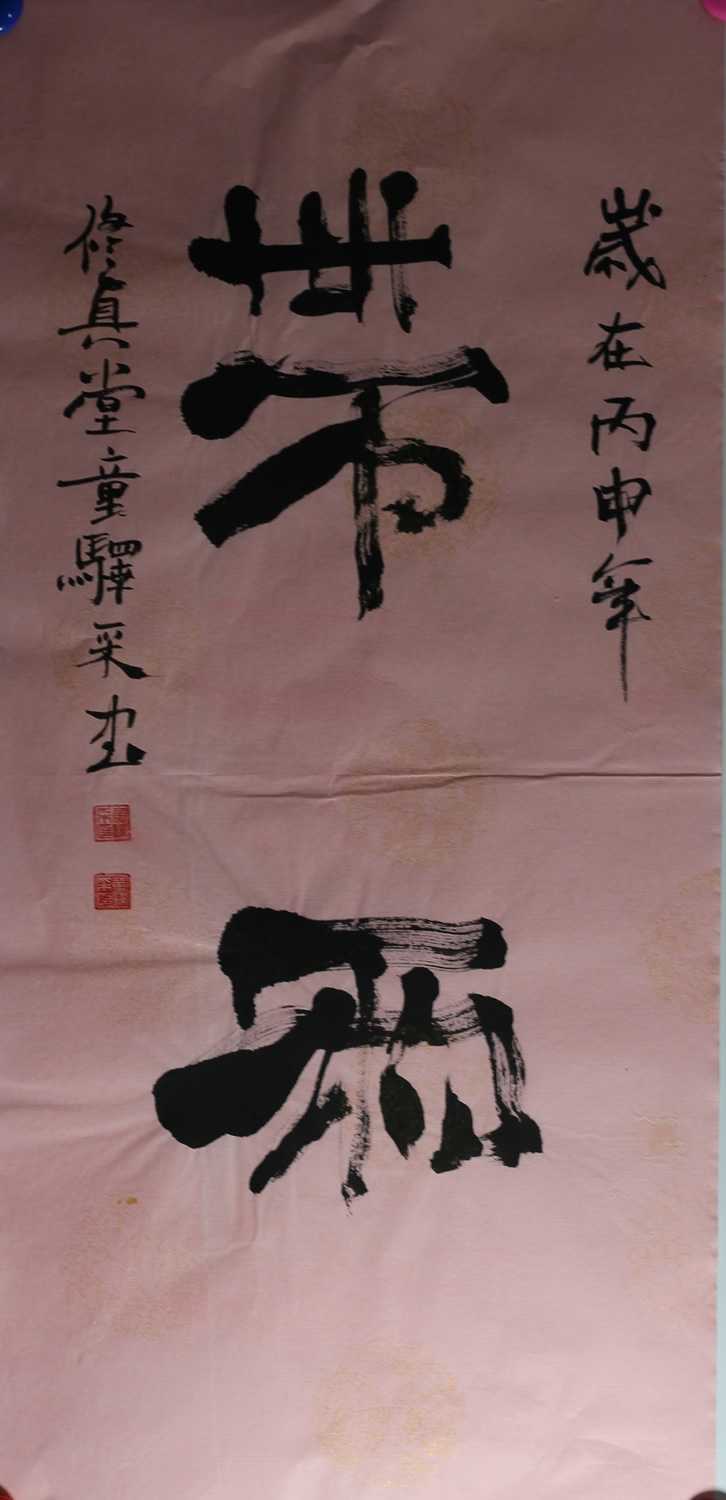 歲在丙申年
帶
修真堂童驛采書